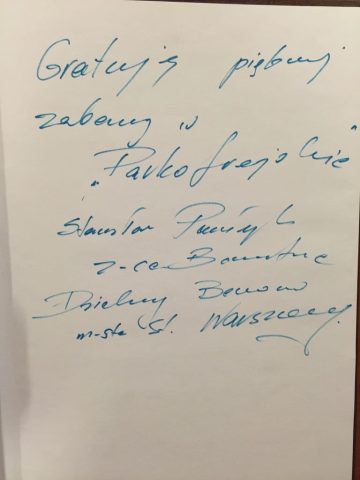 Gratuluję pięknej
zabawy w
"Parko
Stanisław
z-ca Burmistrza
Dzielnicy Bemowo
m-sta St. Warszawy.